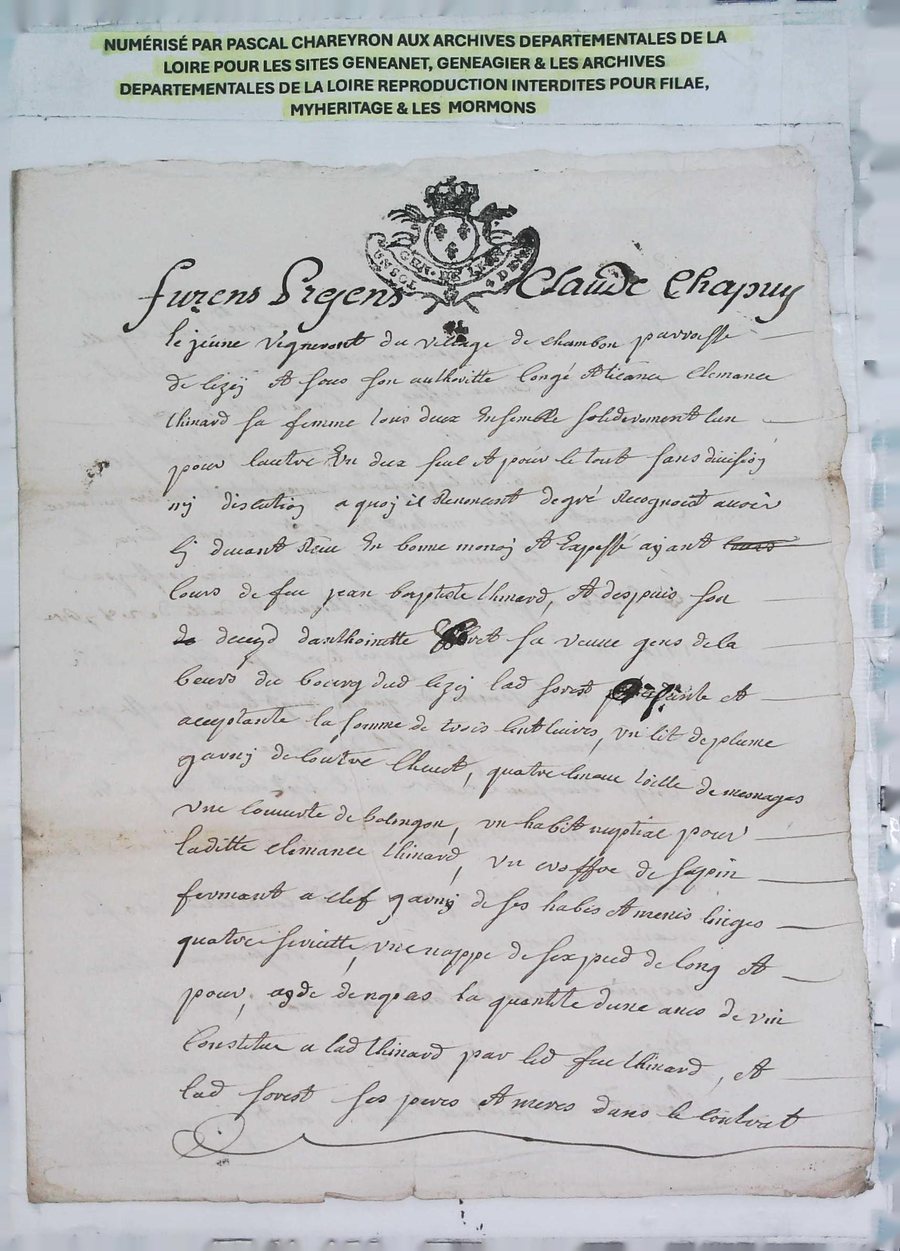 NUMÉRISÉ PAR PASCAL CHAREYRON AUX ARCHIVES DEPARTEMENTALES DE LA
LOIRE POUR LES SITES GENEANET, GENEAGIER & LES ARCHIVES
DEPARTEMENTALES DE LA LOIRE REPRODUCTION INTERDITES POUR FILAE,
MYHERITAGE & LES MORMONS
GEN · DE LYON
UN SOL 4 DEN
furens presens Claude Chapuy
le jeune vigneront du village de chambon parroisse
de lezij et sous son authoritté congé et licance clemance
thinard sa femme tous deux ensemble soliderement l'un
pour lautre un deux seul et pour le tout sans division
nij discution a quoij il renoncent de gré recognoist avoir
cij devant receu en bonne monoij et
cours de feu jean baptiste thinard, et despuis son
deceyd danthoinette forest sa veuve gens de la
beurs du bourg dud lezij lad forest presente et
acceptante la somme de trois cent livres, un lit de plume
garnij de coutre chevet, quatre linceux toille de mesnages
une couverte de, un habit nuptial pour
laditte clemance thinard, un coffre de sapin
fermant a clef garnij de ses habis et menis linges
quatre serviette, une nappe de six pied de long et
pour, de la quantité dune anée de vin
constitué a lad thinard par led feu thinard, et
lad forest ses peres et meres dans le contrat